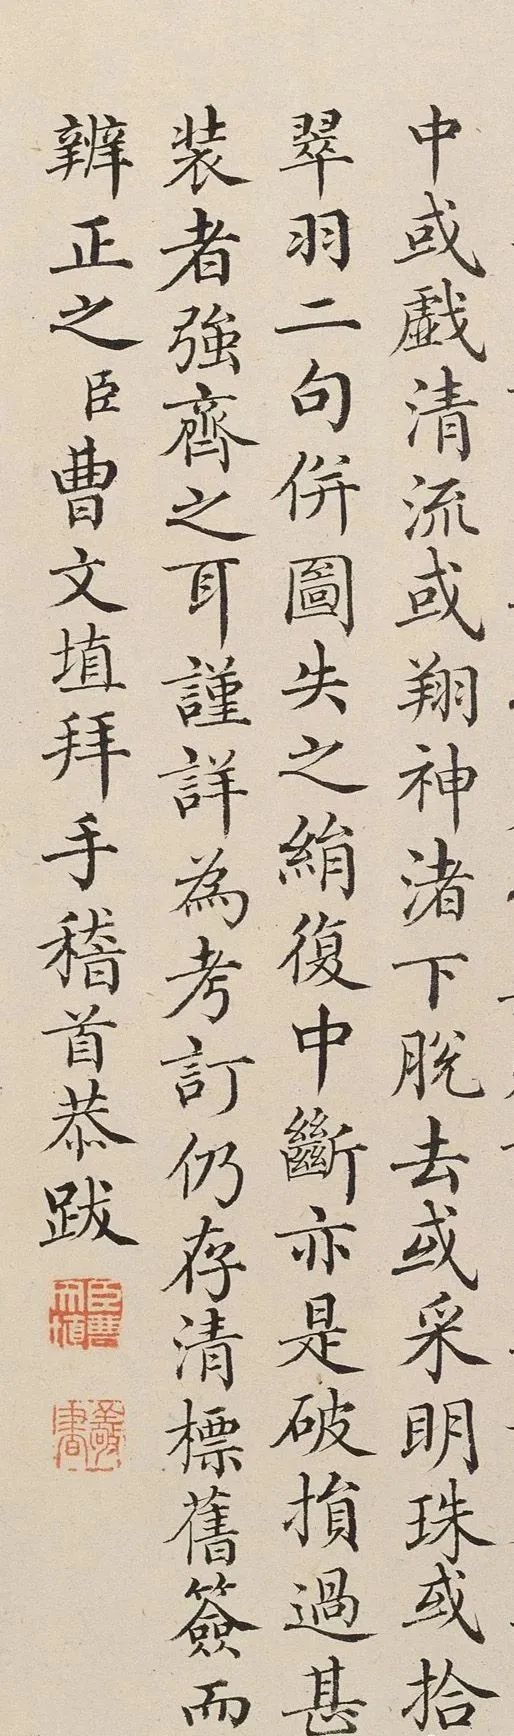 中或戲清流或翔神渚下脫去或采明珠或拾
翠羽二句併圖失之絹復中斷亦是破損過甚
裝者強齊之耳謹詳為考訂仍存清標舊簽而
辨正之臣曹文埴拜手稽首恭跋